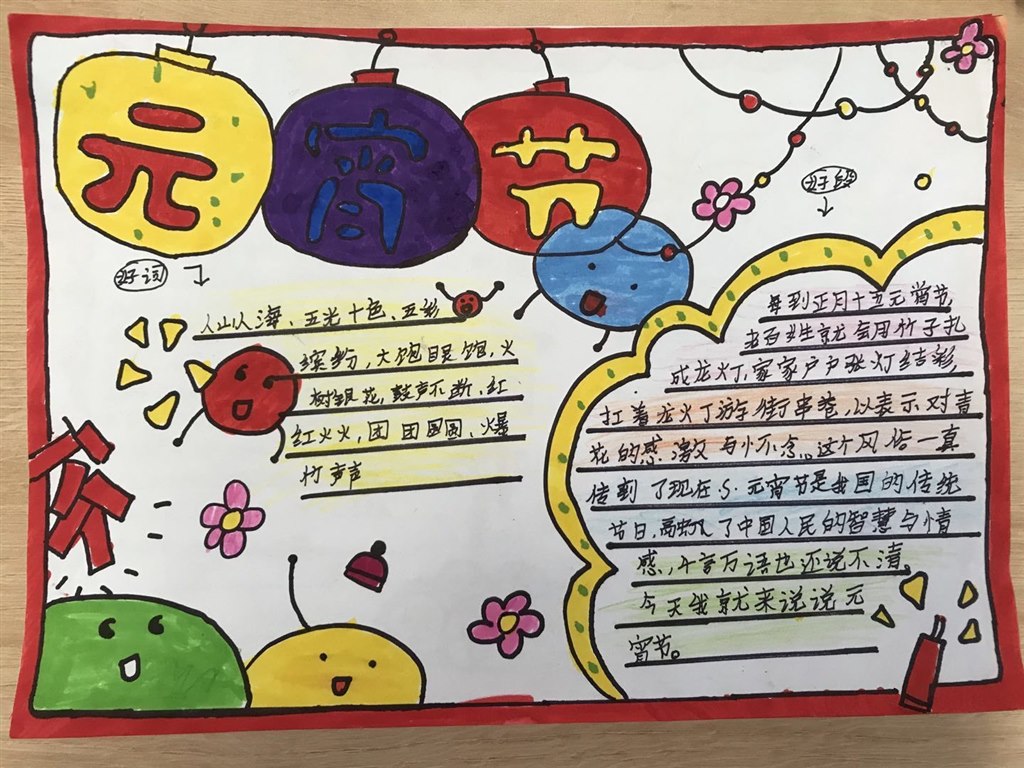 元宵节
好词
人山人海、五光十色、五彩
缤纷，大饱眼饱，火
树银花，鼓声不断、红
红火火，团团圆圆、爆
竹声声
好段
每到正月十五元宵节，
老百姓就会用竹子扎
成龙灯，家家户户张灯结彩，
扛着龙火丁游街串巷，以表示对青
花的感激又与怀念。这个风俗一直
传到了现在。元宵节是我国的传统
节日，融入了中国人民的智慧与情
感，千言万语也还说不清。
今天我就来说说元
宵节。